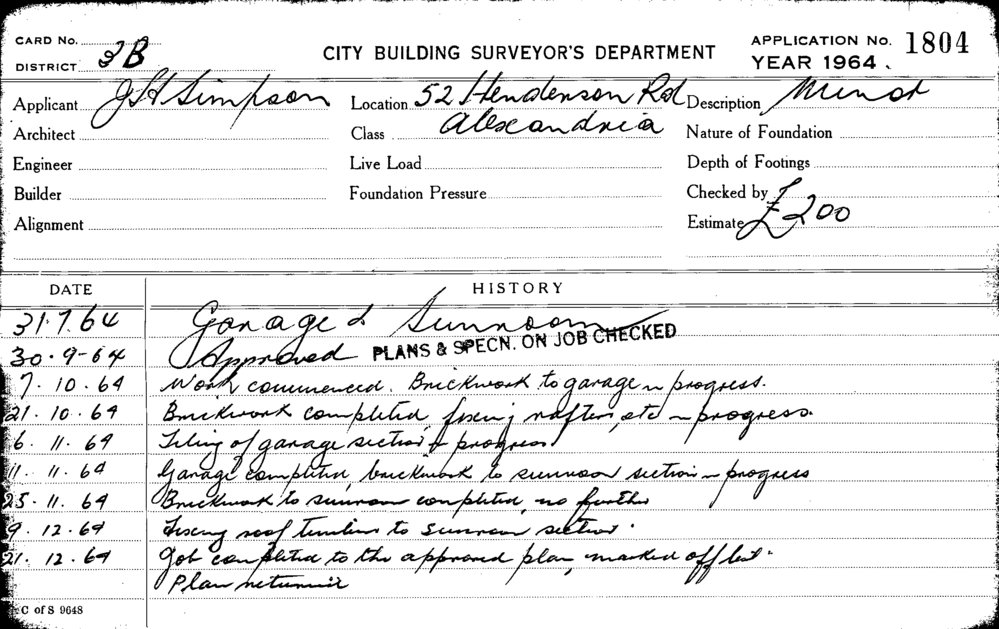 CARD No.
DISTRICT 3B
CITY BUILDING SURVEYOR'S DEPARTMENT
APPLICATION No. 1804
YEAR 1964.
Applicant J H Simpson
Location 52 Henderson Rd Alexandria
Description Minor
Architect
Class
Nature of Foundation
Engineer
Live Load
Depth of Footings
Builder
Foundation Pressure
Checked by
Alignment
Estimate £200
DATE HISTORY
31.7.64 Garage & Sunroom
30.9-64 Approved PLANS & SPECN. ON JOB CHECKED
7.10.64 Work commenced. Brickwork to garage in progress.
21.10.64 Brickwork completed, fixing rafters, etc in progress.
6.11.64 Tiling of garage section in progress
11.11.64 Garage completed, brickwork to sunroom section in progress
25.11.64 Brickwork to sunroom completed, no further
9.12.64 Fixing roof timbers to sunroom section.
21.12.64 Job completed to the approved plan, marked off list.
Plan
C of S 9648